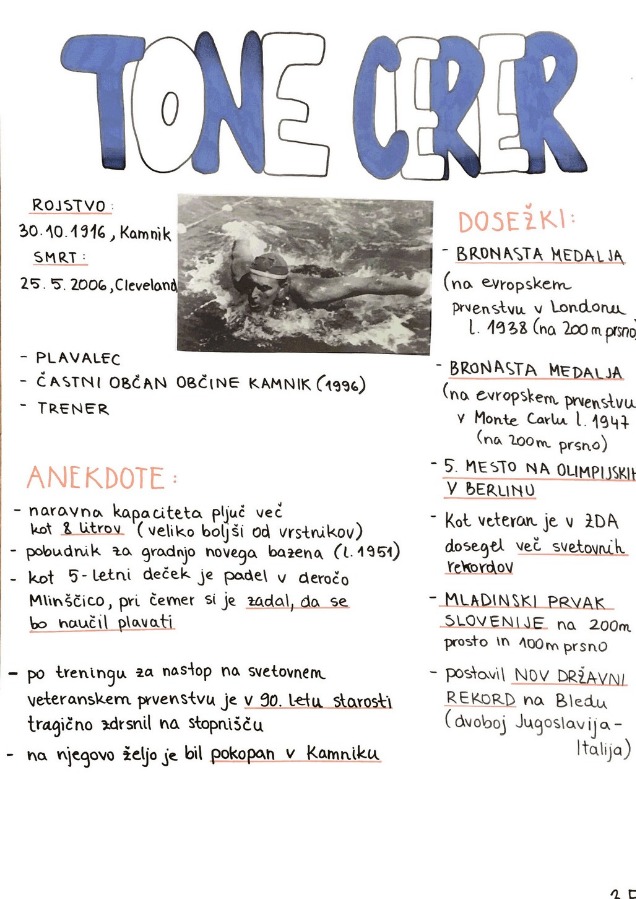 TONE CERER
ROJSTVO:
30.10.1916, Kamnik
SMRT:
25.5.2006, Cleveland
- PLAVALEC
- ČASTNI OBČAN OBČINE KAMNIK (1996)
- TRENER
ANEKDOTE:
- naravna kapaciteta pljuč več
kot 8 litrov (veliko boljši od vrstnikov)
- pobudnik za gradnjo novega bazena (l. 1951)
- kot 5-letni deček je padel v deročo
Mlinščico, pri čemer si je zadal, da se
bo naučil plavati
- po treningu za nastop na svetovnem
veteranskem prvenstvu je v 90. letu starosti
tragično zdrsnil na stopnišču
- na njegovo željo je bil pokopan v Kamniku
DOSEŽKI:
- BRONASTA MEDALJA
(na evropskem
prvenstvu v Londonu
l. 1938 (na 200m prsno)
- BRONASTA MEDALJA
(na evropskem prvenstvu
v Monte Carlu l. 1947
(na 200m prsno)
- 5. MESTO NA OLIMPIJSKIH
V BERLINU
- Kot veteran je v ZDA
dosegel več svetovnih
rekordov
- MLADINSKI PRVAK
SLOVENIJE na 200m
prosto in 100m prsno
- postavil NOV DRŽAVNI
REKORD na Bledu
(dvoboj Jugoslavija-
Italija)